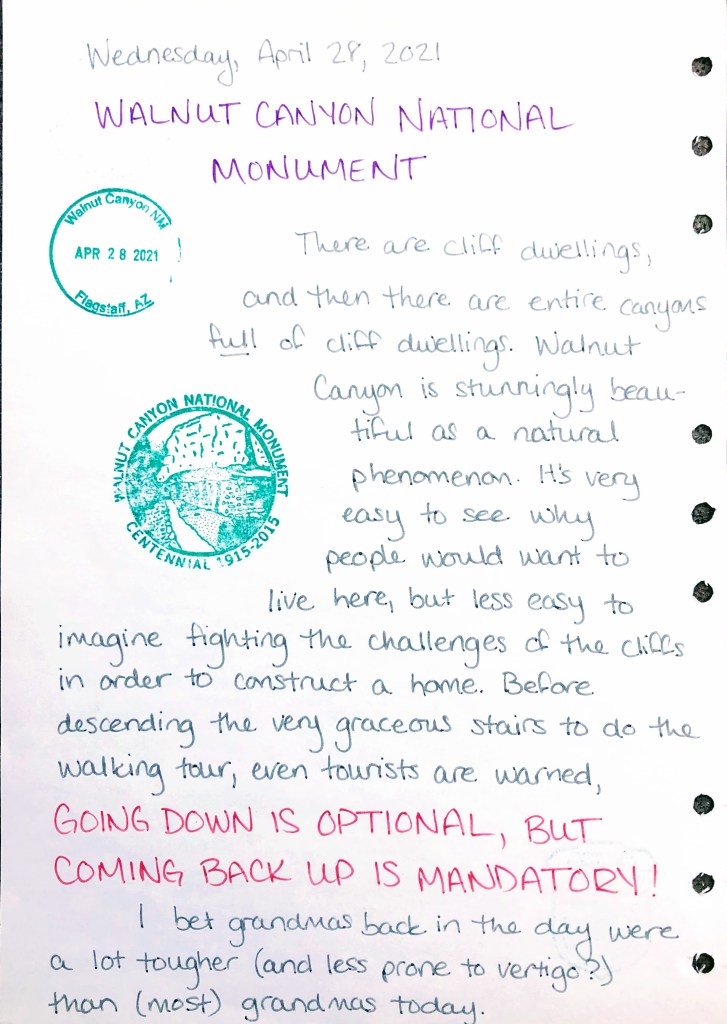 Wednesday, April 28, 2021
WALNUT CANYON NATIONAL
MONUMENT
Walnut Canyon NM
APR 28 2021
Flagstaff, AZ
There are cliff dwellings,
and then there are entire canyons
full of cliff dwellings. Walnut
Canyon is stunningly beau-
tiful as a natural
phenomenon. It's very
easy to see why
people would want to
live here, but less easy to
WALNUT CANYON NATIONAL MONUMENT
CENTENNIAL 1915-2015
imagine fighting the challenges of the cliffs
in order to construct a home. Before
descending the very graceous stairs to do the
walking tour, even tourists are warned,
GOING DOWN IS OPTIONAL, BUT
COMING BACK UP IS MANDATORY!
I bet grandmas back in the day were
a lot tougher (and less prone to vertigo?)
than (most) grandmas today.